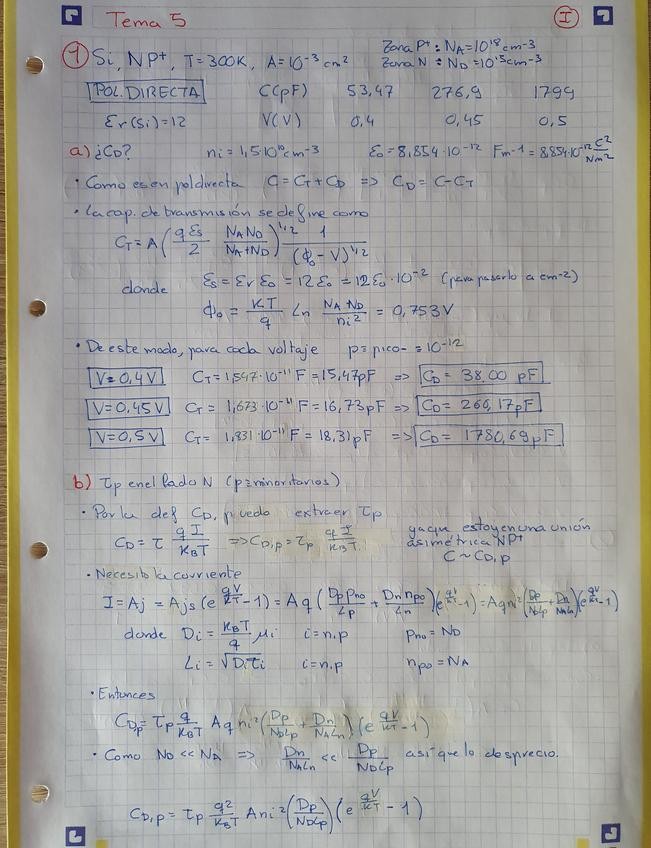 Tema 5
I
1 Si, NP⁺, T=300K, A=10⁻³ cm²
Zona P⁺: NA=10¹⁸ cm-3
Zona N: ND=10¹⁵ cm-3
POL. DIRECTA C(pF) 53,47 276,9 1799
Er(Si)=12 V(V) 0,4 0,45 0,5
a) ¿CD? ni=1,5·10¹⁰ cm-3 ε0=8,854·10⁻¹² Fm-1 = 8,854·10⁻¹² C²/Nm²
· Como es en pol directa C=CT+CD => CD=C-CT
· la cap. de transmisión se define como
CT = A (qεs/2 NAND/NA+ND)^1/2 1/(ϕ0-V)^1/2
donde εs = εr ε0 = 12ε0 = 12ε0·10⁻² (para pasarlo a cm-2)
ϕ0 = KT/q Ln NA·ND/ni² = 0,753V
· De este modo, para cada voltaje p=pico- = 10⁻¹²
V=0,4V CT=1,547·10⁻¹¹ F = 15,47pF => CD= 38,00 pF
V=0,45V CT= 1,673·10⁻¹¹ F = 16,73pF => CD= 260,17pF
V=0,5V CT= 1,831·10⁻¹¹ F = 18,31pF => CD= 1780,69pF
b) τp en el lado N (p=minoritarios)
· Por la def CD, puedo extraer τp
CD = τ qI/KBT => CD,p = τp qI/KBT
ya que estoy en una unión
asimétrica NP⁺
C ~ CD,p
· Necesito la corriente
I = Aj = Ajs (e^qV/KT -1) = Aq (Dp pno/Lp + Dn npo/Ln)(e^qV/KT -1) = Aqni² (Dp/NDLp + Dn/NALn)(e^qV/KT -1)
donde Di = KBT/q μi i=n,p pno = ND
Li = √Diτi i=n,p npo = NA
· Entonces
CDp = τp q/KBT Aq ni² (Dp/NDLp + Dn/NALn) (e^qV/KT -1)
· Como ND << NA => Dn/NALn << Dp/NDLp así que lo desprecio.
CD,p = τp q²/KBT Ani² (Dp/NDLp) (e^qV/KT - 1)